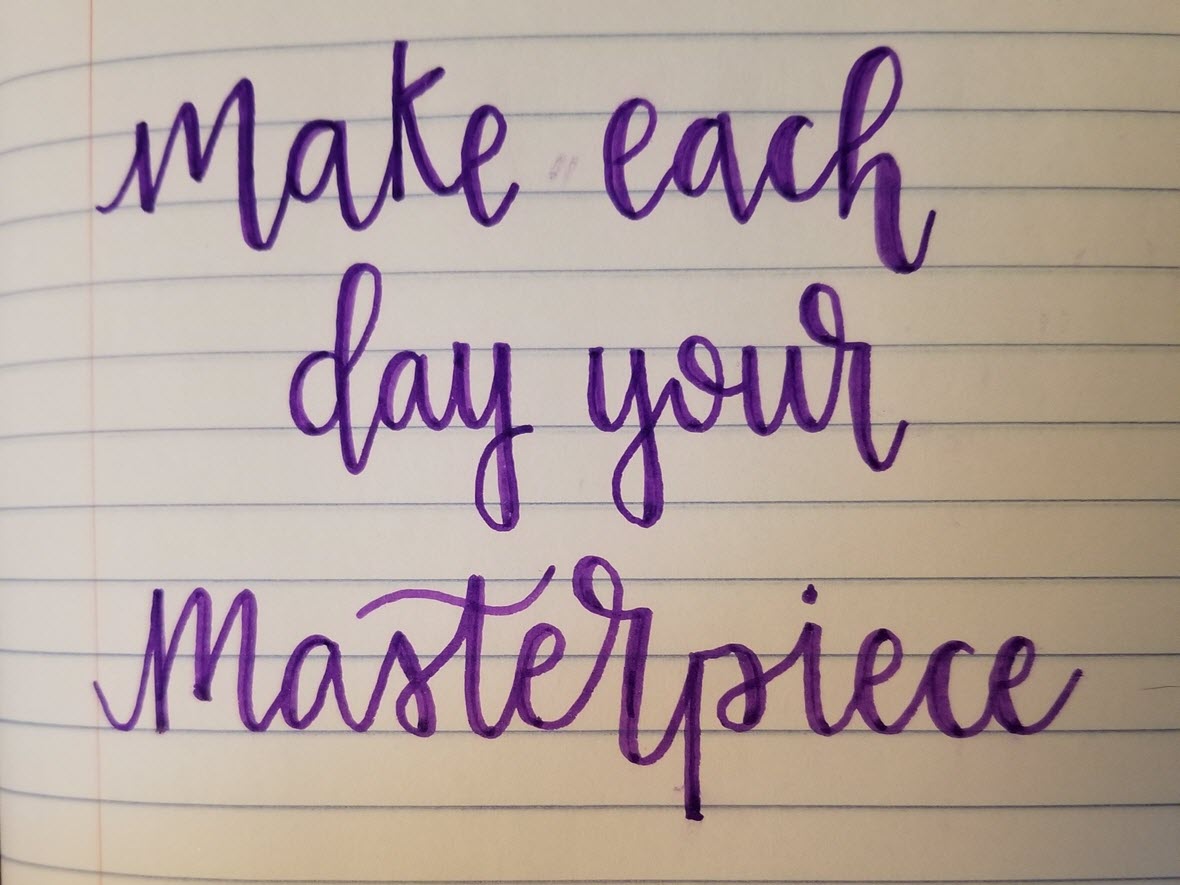 Make each
day your
Masterpiece